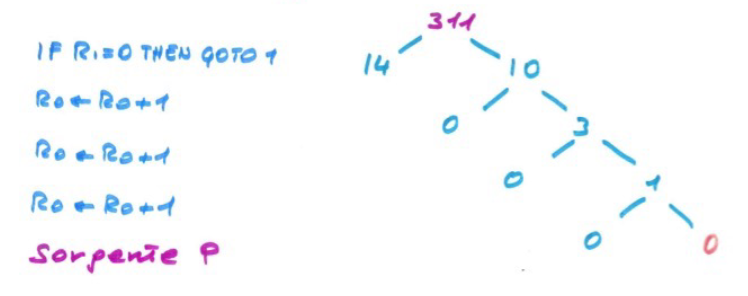 IF R1=0 THEN GOTO 1
R0 ← R0+1
R0 ← R0+1
R0 ← R0+1
Sorgente P
311
14 10
0 3
0 1
0 0